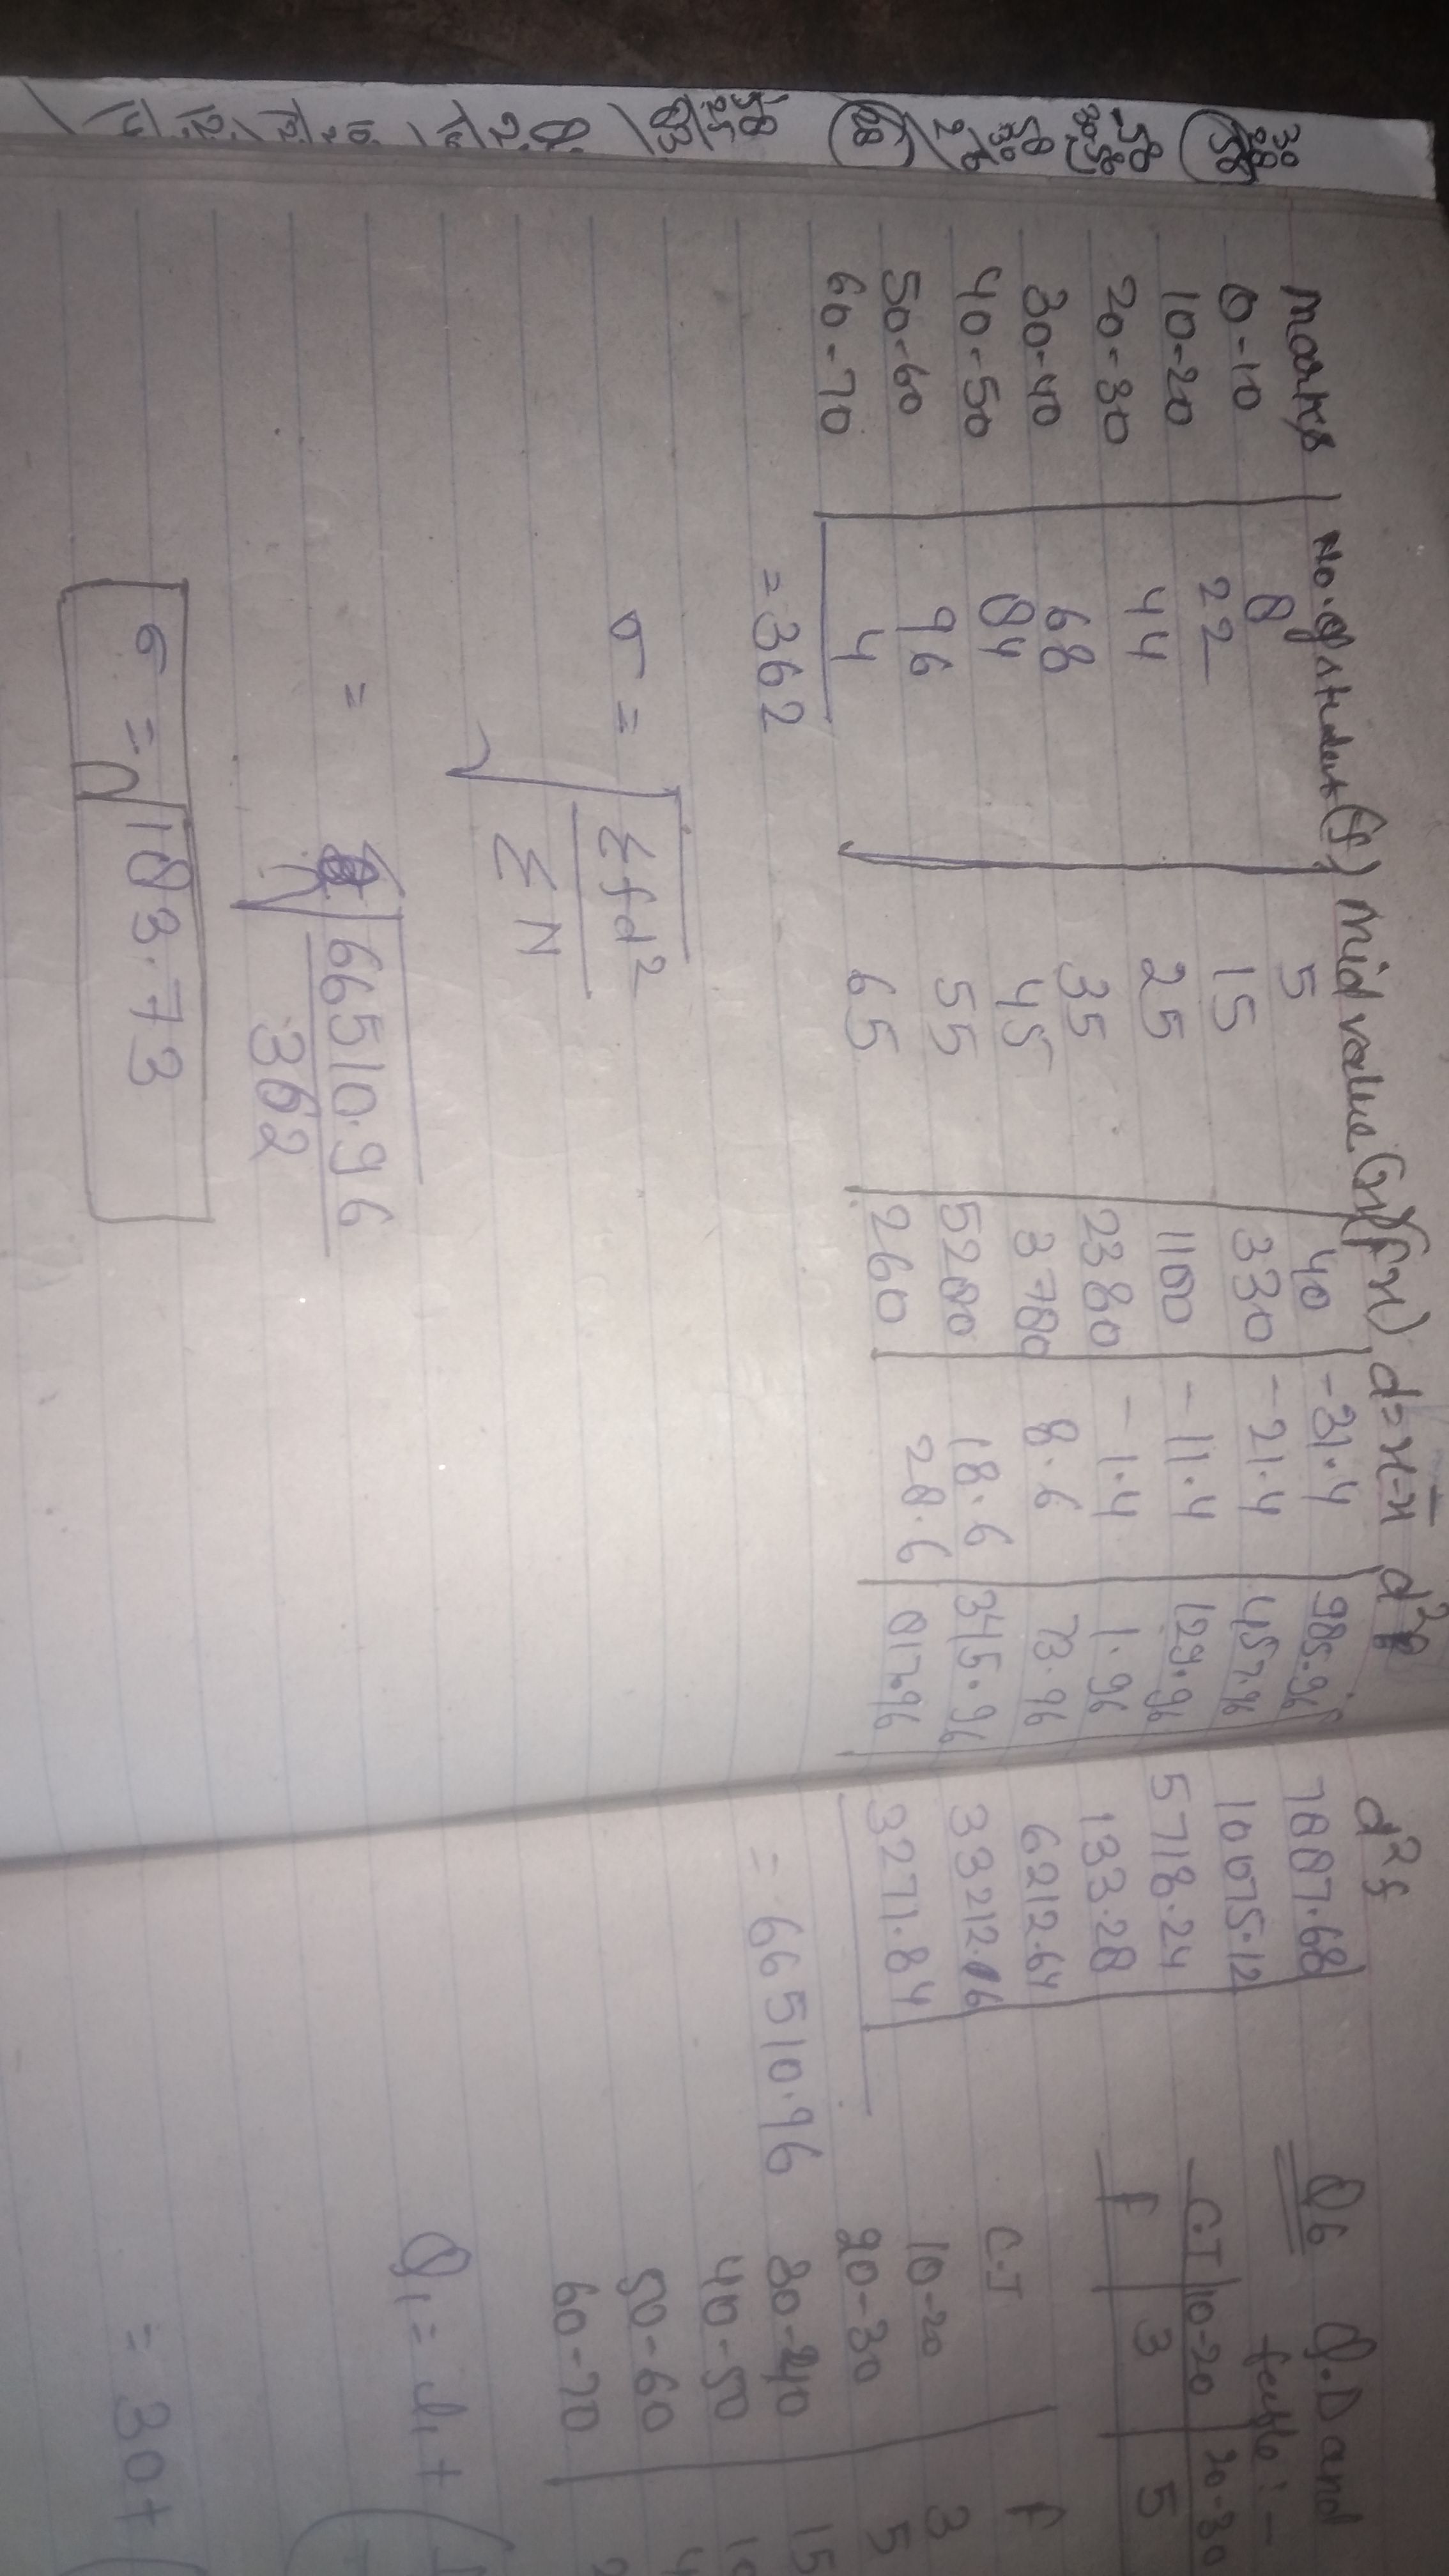 Marks No. of student (f) Mid value (x) (fx) d=x-x̄ d² d²f
0-10 8 5 40 -31.4 985.96 7887.68
10-20 22 15 330 -21.4 457.96 10075.12
20-30 44 25 1100 -11.4 129.96 5718.24
30-40 68 35 2380 -1.4 1.96 133.28
40-50 84 45 3780 8.6 73.96 6212.64
50-60 96 55 5280 18.6 345.96 33212.16
60-70 4 65 260 28.6 817.96 3271.84
=362 = 66510.96
σ = √Σfd²
ΣN
= √66510.96
362
σ = √183.73
Q6 Q.D and
C.I 10-20 20-30
f 3 5
C.I f
10-20 3
20-30 5
30-40 15
40-50
50-60
60-70
Q₁ = l₁ + (
= 30+ (